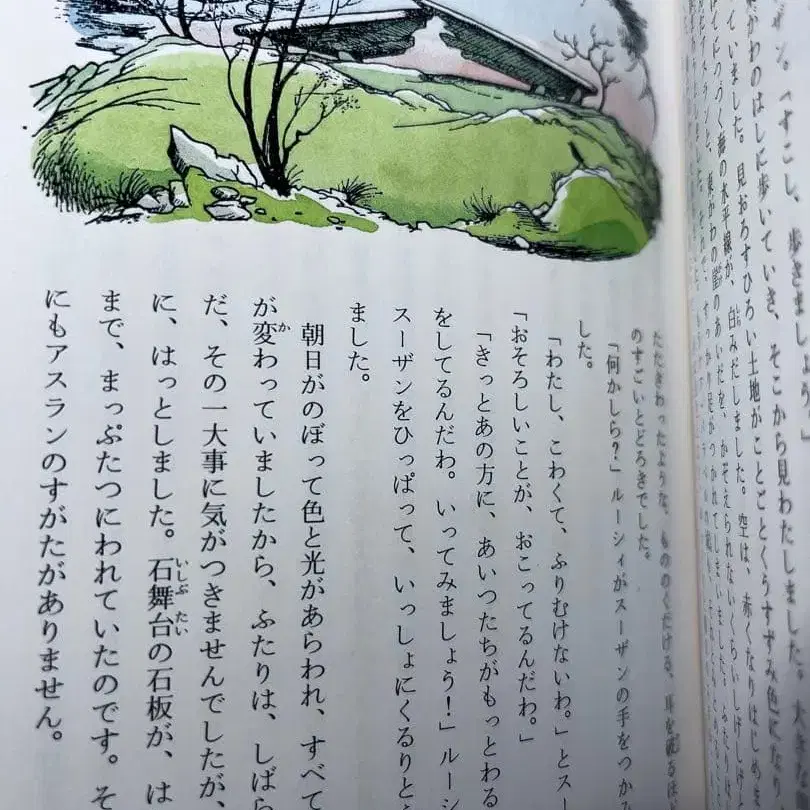 ザン。「すこし、歩きましょう」
がわのはしに歩いていき、そこから見わたしました。大き
ていました。見おろすひろい土地がことごとくうすずみ色になり
につづく海の水平線が、白みだしました。空は、赤くなりはじめま
たたきわったような、もののくだける、耳を
のすごいとどろきでした。
「何かしら？」ルーシィがスーザンの手をつか
した。
「わたし、こわくて、ふりむけないわ。」とスー
「おそろしいことが、おこってるんだわ。」
「きっとあの方に、あいつたちがもっとわる
をしてるんだわ。いってみましょう！」ルーシ
スーザンをひっぱって、いっしょにくるりと
ました。
朝日がのぼって色と光があらわれ、すべて
が変かわっていましたから、ふたりは、しばら
だ、その一大事に気がつきませんでしたが、
に、はっとしました。石舞台いしぶたいの石板が、は
まで、まっぷたつにわれていたのです。そ
にもアスランのすがたがありません。